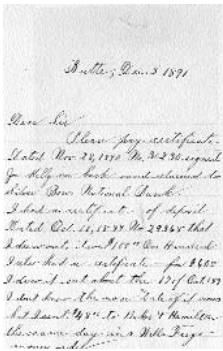 Butte, Dec. 3 1891
Dear Sir
Please pay certificate
Dated Nov. 28, 1890 No. 30230 signed
on back and returned to
Silver Bow National Bank
I had a certificate of deposit
Dated Oct. 11, 1889 No 29365 that
I drew out, it was $100.00 One Hundred
I also had a certificate for $600
I drew it out about the 17 of Oct 189
I dont know the no or Date of it now
but I sent $48 to & Hamilton
the same day in a Wells Fargo
money order